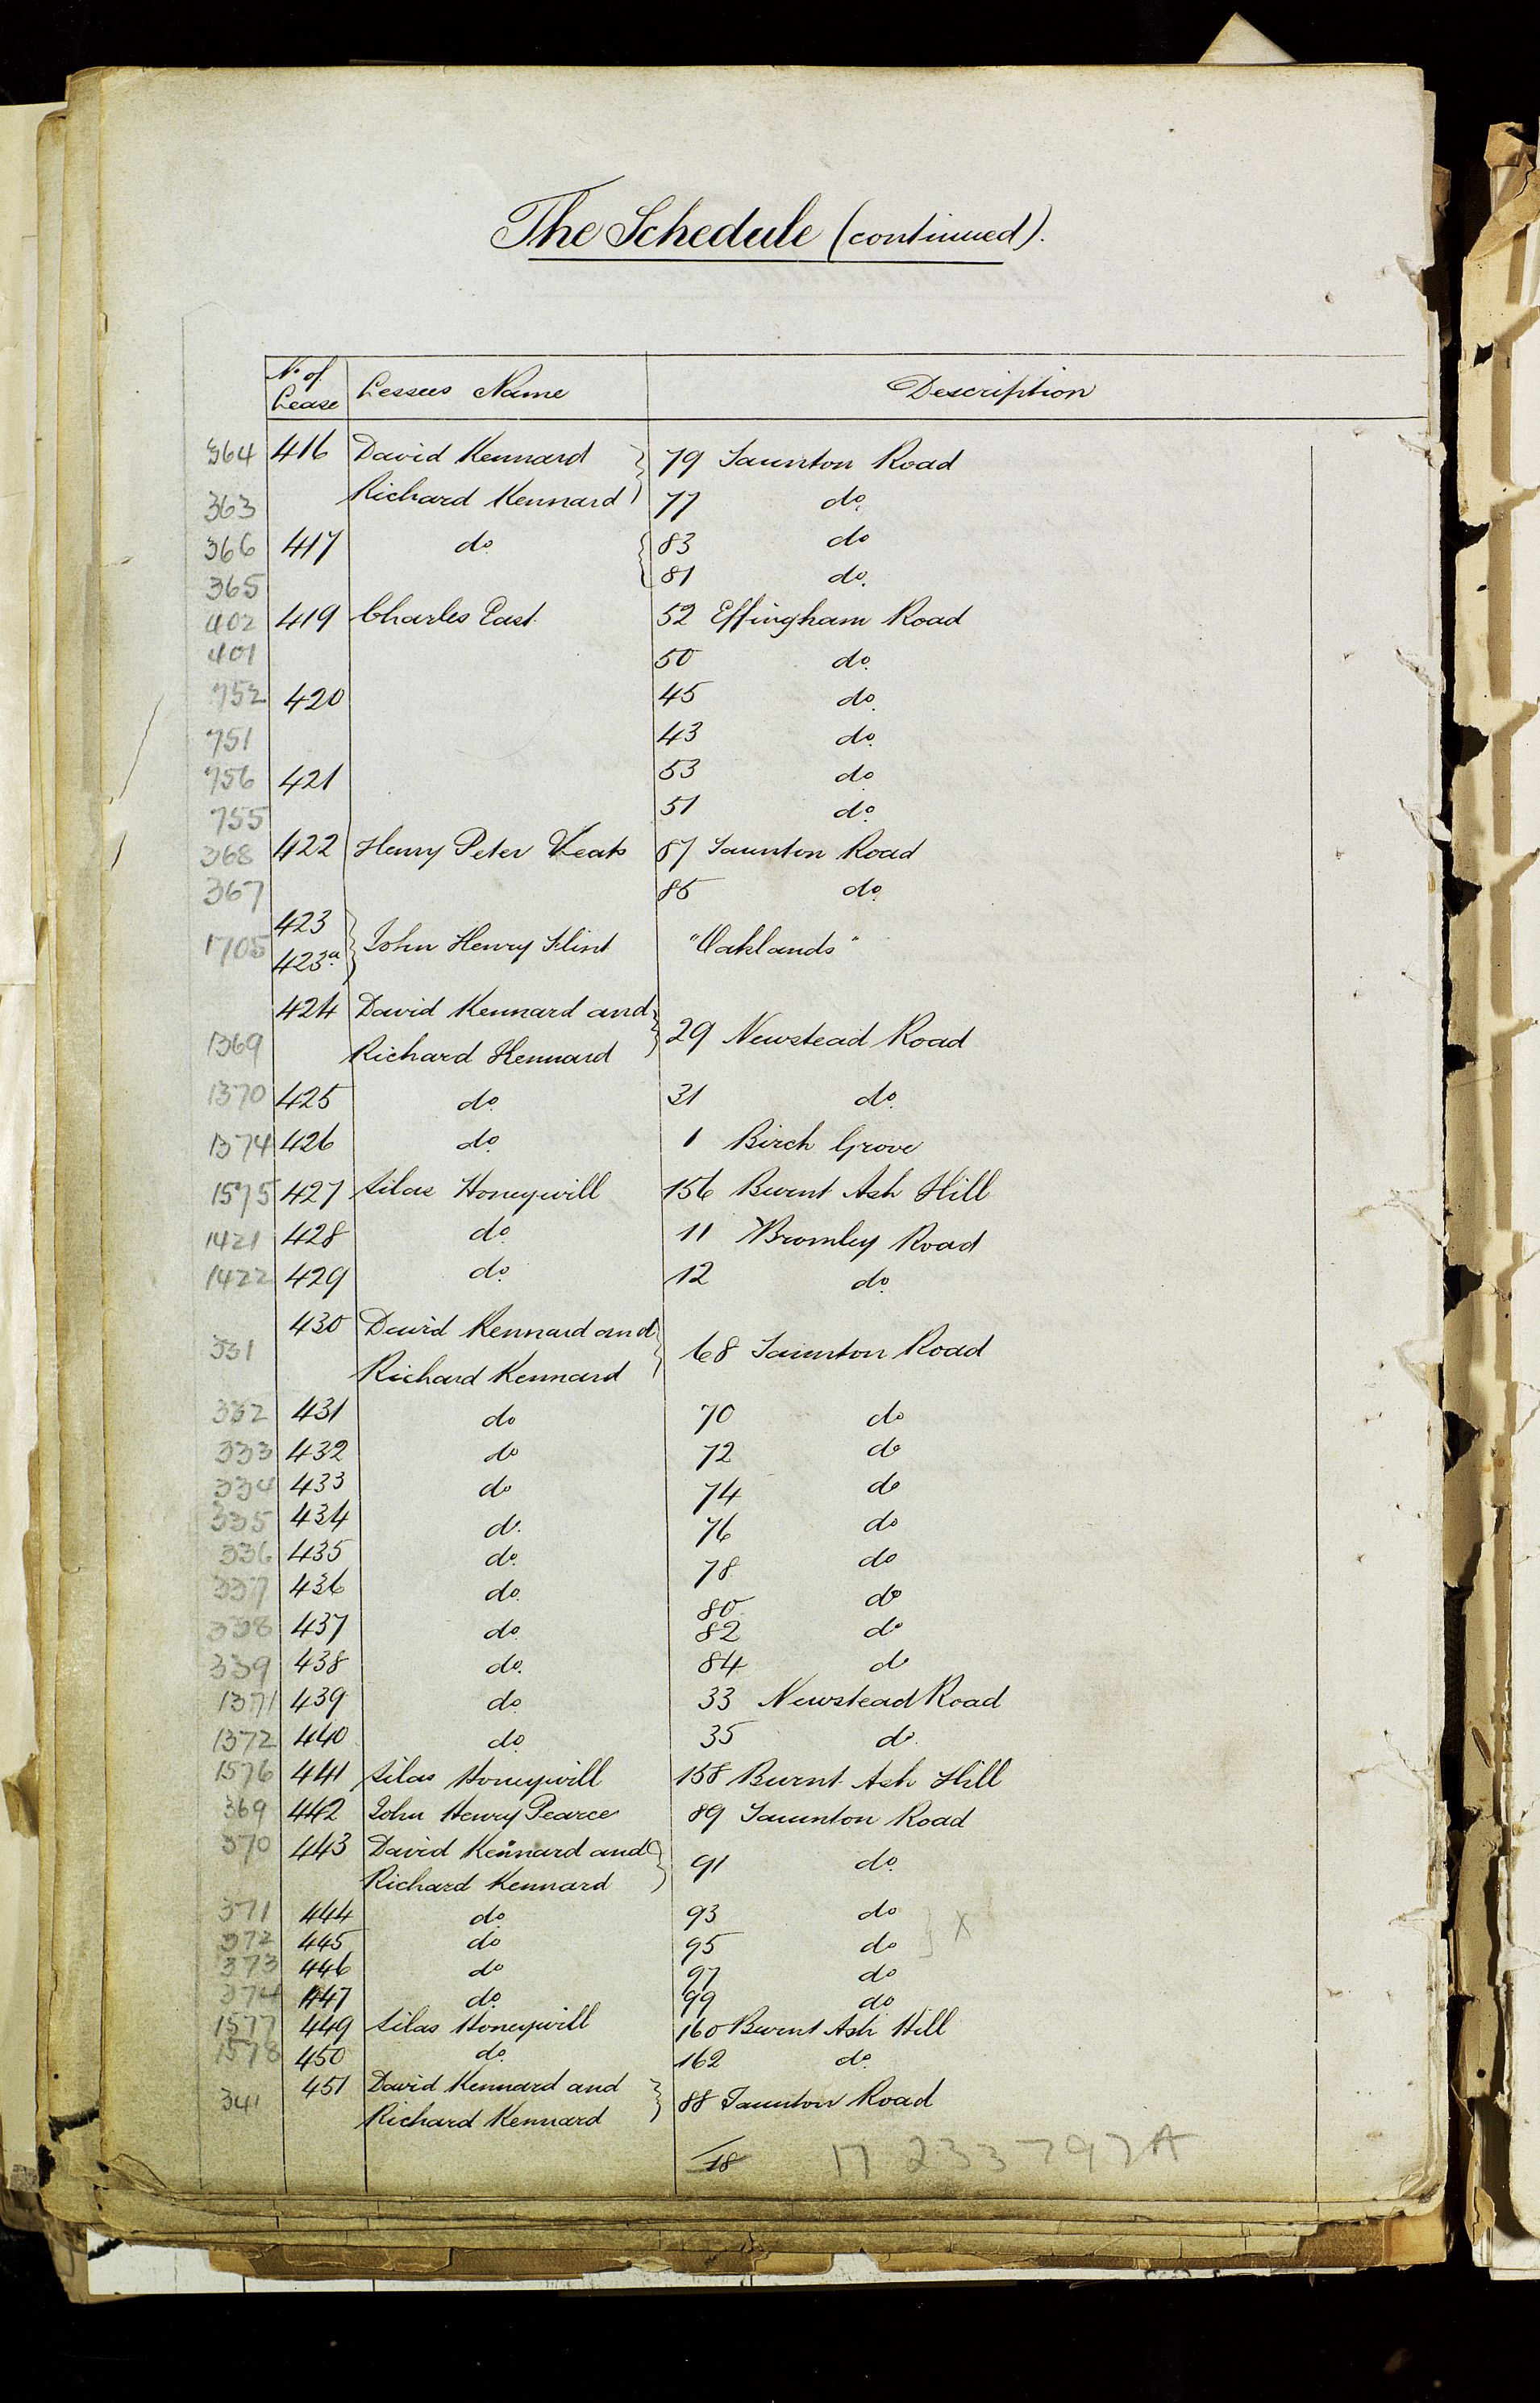 The Schedule (continued).
No. of Lease Lessees Name Description
364 416 David Kennard 79 Taunton Road
363 Richard Kennard 77 do.
366 417 do. 83 do
365 81 do.
402 419 Charles East. 52 Effingham Road
401 50 do.
752 420 45 do.
751 43 do.
756 421 53 do
755 51 do.
368 422 Henry Peter Keats 87 Taunton Road
367 85 do.
423
1705 423a John Henry Flint "Oaklands"
424 David Kennard and
1369 Richard Kennard 29 Newstead Road
1370 425 do. 31 do.
1374 426 do. 1 Birch Grove
1575 427 Silas Honeywill 156 Burnt Ash Hill
1421 428 do. 11 Bromley Road
1422 429 do. 12 do.
430 David Kennard and
331 Richard Kennard 68 Taunton Road
332 431 do 70 do
333 432 do 72 do
334 433 do 74 do
335 434 do. 76 do
336 435 do. 78 do
337 436 do. 80 do
338 437 do. 82 do
339 438 do. 84 do
1371 439 do. 33 Newstead Road
1372 440 do. 35 do.
1576 441 Silas Honeywill 158 Burnt Ash Hill
369 442 John Henry Pearce 89 Taunton Road
370 443 David Kennard and 91 do.
Richard Kennard
371 444 do. 93 do
372 445 do 95 do X
373 446 do 97 do
374 447 do. 99 do
1577 449 Silas Honeywill 160 Burnt Ash Hill
1578 450 do. 162 do.
451 David Kennard and
341 Richard Kennard 88 Taunton Road
18 17 233797A